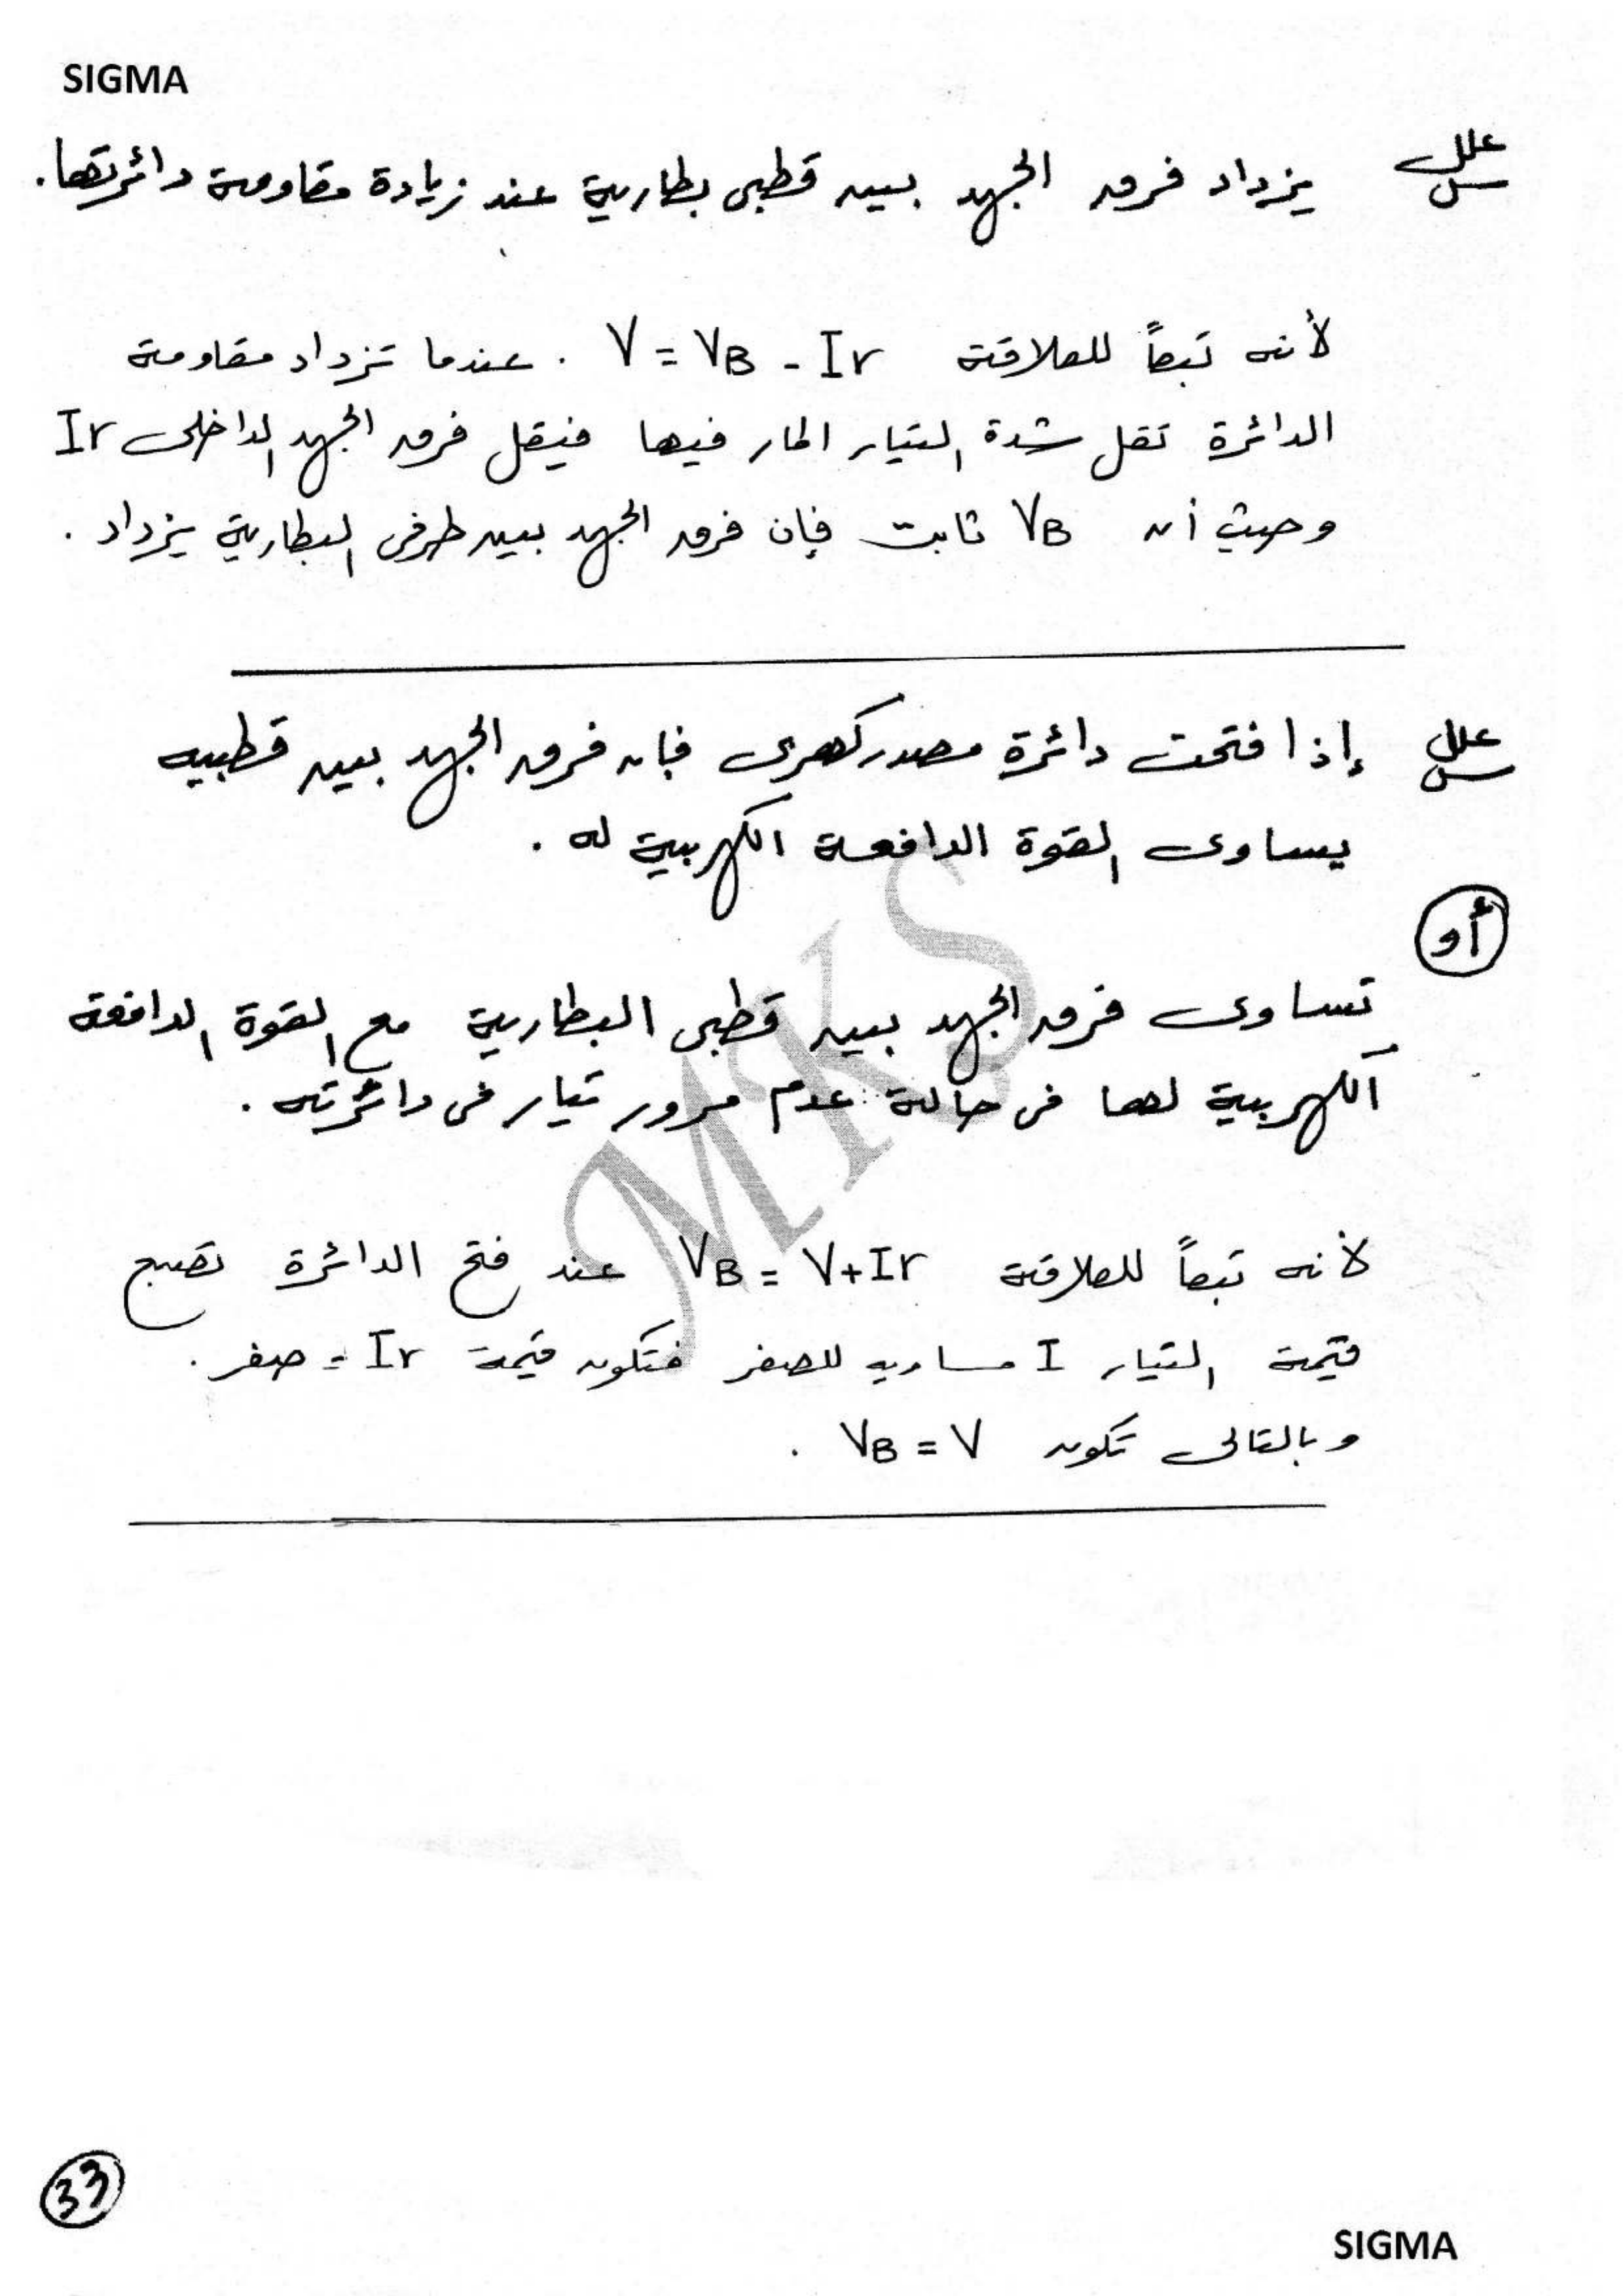 SIGMA
علل يزداد فرق الجهد بين قطبى بطارية عند زيادة مقاومة دائرتها.
لأنه تبعاً للعلاقة V = VB - Ir . عندما تزداد مقاومة
الدائرة تقل شدة التيار المار فيها فيقل فرق الجهد الداخلى Ir
وحيث أن VB ثابت فإن فرق الجهد بين طرفى البطارية يزداد .
علل إذا فتحت دائرة مصدر كهربى فإن فرق الجهد بين قطبيه
يساوى القوة الدافعة الكهربية له .
أو
تساوى فرق الجهد بين قطبى البطارية مع القوة الدافعة
الكهربية لها فى حالة عدم مرور تيار فى دائرته .
MKS
لأنه تبعاً للعلاقة VB = V+Ir عند فتح الدائرة تصبح
قيمة التيار I مساوية للصفر فتكون قيمة Ir = صفر .
وبالتالى تكون VB = V .
33
SIGMA